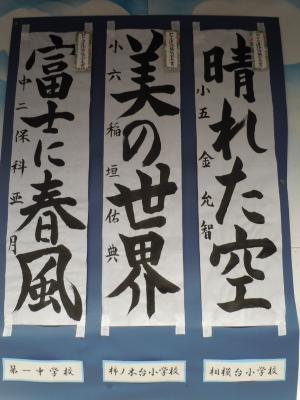 晴れた空
小五 金允智
相模台小学校
美の世界
小六 稲垣佑典
柿ノ木台小学校
富士に春風
中二 保科亜月
第一中学校